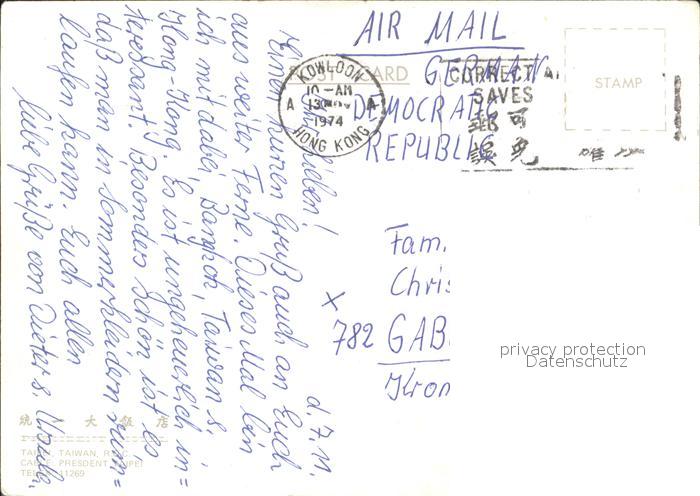 AIR MAIL
POST CARD
GERMAN
DEMOCRATIC
REPUBLIC
KOWLOON
10-AM
A 13 NOV A
1974
HONG KONG
CORRECT
SAVES
可
誤 免
STAMP
d. 7. 11.
Ihr Lieben!
Einen kurzen Gruß auch an Euch
aus weiter Ferne. Dieses Mal bin
ich mit dabei, Bangkok, Taiwan u.
Hong-Kong. Es ist ungeheuerlich in=
teressant. Besonders schön, ist es
daß man in Sommerkleidern rum=
laufen kann. Euch allen
liebe Grüße von Dieter u.
Fam.
Chris
x
782 GAB
Kron
privacy protection
Datenschutz
統一大飯店
TAIPEI, TAIWAN, R.O.C.
CABLE: PRESDENT TAIPEI